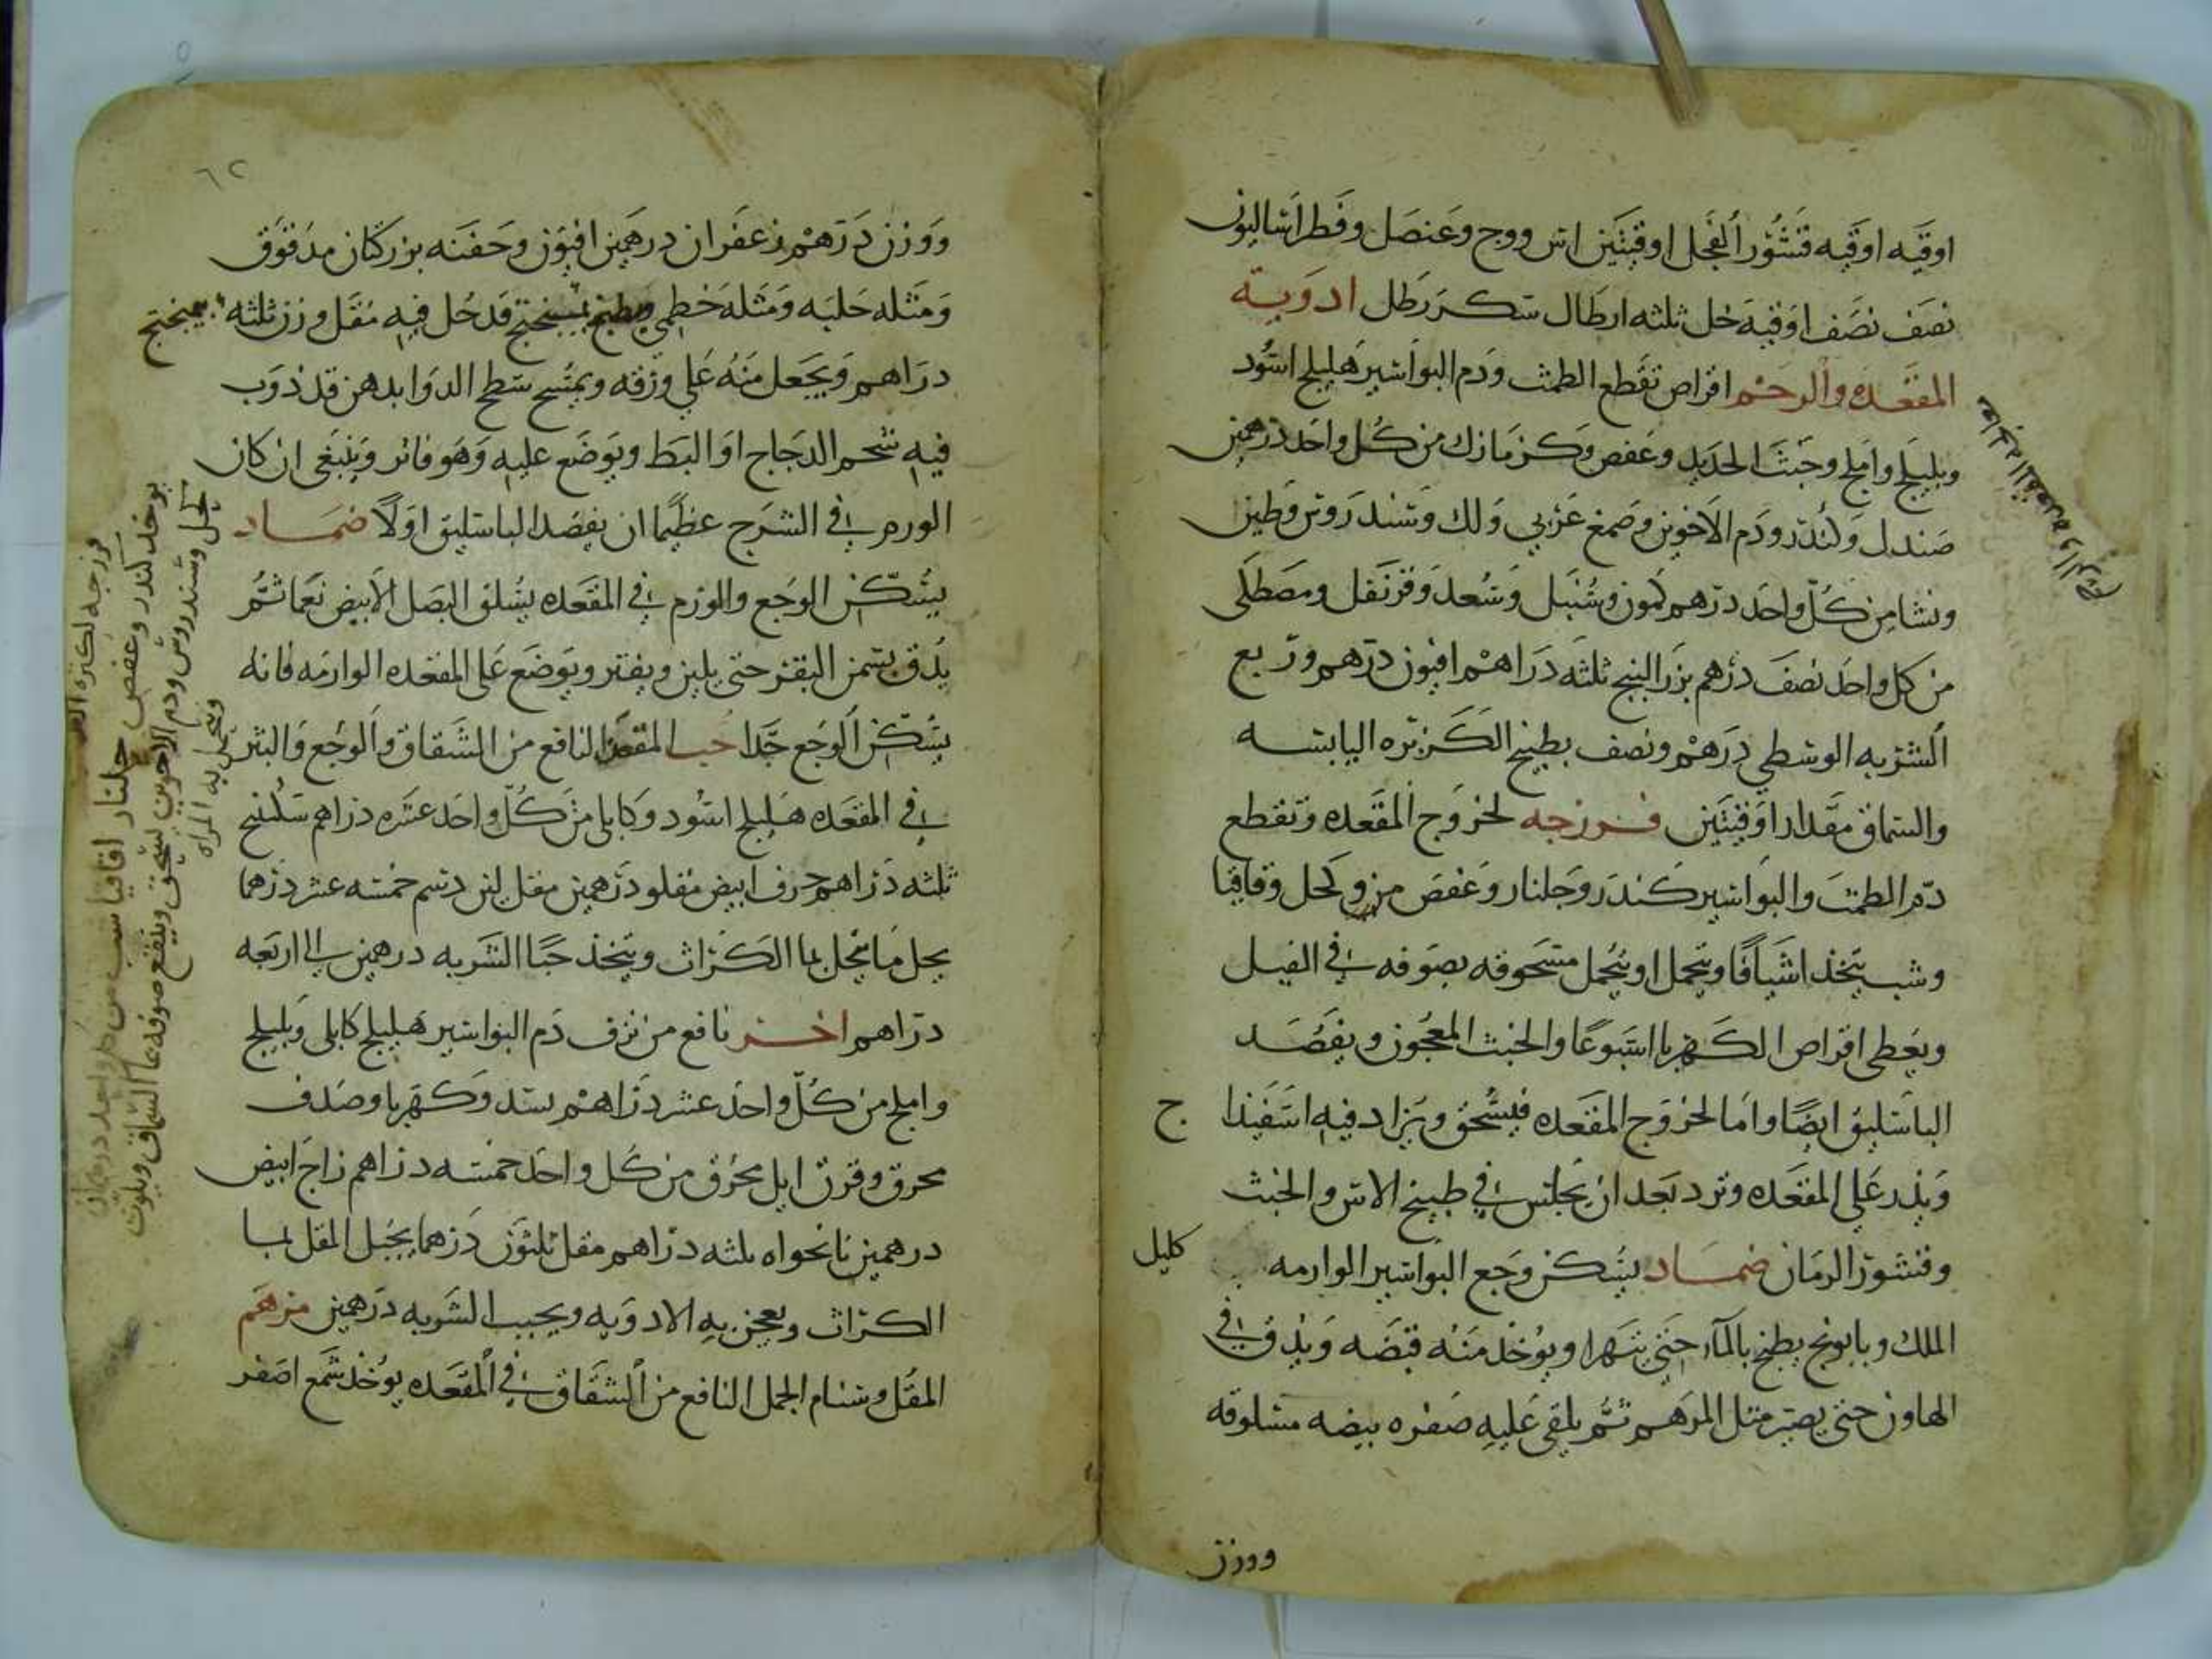 اوقيه اوقيه قشور الفجل اوقيتين اس ووج وعنصل وفطراساليون
نصف نصف اوقيه خل ثلثه ارطال سكر رطل ادوية
المقعده والرحم اقراص تقطع الطمث ودم البواسير هليلج اسود
وبليلج واملج وخبث الحديد وعفص وكزمازك من كل واحد درهمين
صندل وكندر ودم الاخوين وصمغ عربي ولك وسندروس وطين
ونشا من كل واحد درهم كمون وسنبل وسعد وقرنفل ومصطكى
من كل واحد نصف درهم بزر البنج ثلثه دراهم افيون درهم وربع
الشربه الوسطى درهم ونصف بطبيخ الكزبره اليابسه
والسماق مقدار اوقيتين فرزجه لخروج المقعده وتقطع
دم الطمث والبواسير كندر وجلنار وعفص مر وكحل وقاقيا
وشب يتخذ اشيافا ويتحمل او يتحمل مسحوقه بصوفه في القبل
ويعطى اقراص الكهربا اسبوعا والخبث المعجون ويفصد
الباسليق ايضا واما لخروج المقعده فيسحق ويزاد فيه اسفيذا ج
ويذر على المقعده وترد بعد ان يجلس في طبيخ الاس والخبث
وقشور الرمان ضماد يسكن وجع البواسير الوارمه كليل
الملك وبابونج يطبخ بالماء حتى يتهرا ويوخذ منه قبضه ويدق في
الهاون حتى يصير مثل المرهم ثم يلقى عليه صفره بيضه مسلوقه
ووزن
٦٢
ووزن درهم زعفران درهمين افيون وحفنه بزركتان مدقوق
ومثله حلبه ومثله خطمي ويطبخ بميبختج قد حل فيه مقل وزن ثلثه
بميبختج
دراهم ويجعل منه على ورقه ويمسح سطح الدوا بدهن قد ذوب
فيه شحم الدجاج او البط ويوضع عليه وهو فاتر وينبغي ان كان
الورم في الشرج عظيما ان يفصد الباسليق اولا ضماد
يسكن الوجع والورم في المقعده يسلق البصل الابيض نعما ثم
يدق بسمن البقر حتى يلين ويفتر ويوضع على المقعده الوارمه فانه
يسكن الوجع جدا حب المقعده النافع من الشقاق والوجع والبثر
في المقعده هليلج اسود وكابلي من كل واحد عشره دراهم سكبينج
ثلثه دراهم حرف ابيض مقلو درهمين مقل لين دسم خمسه عشر درهما
يحل ما ينحل بما الكراث ويتخذ حبا الشربه درهمين الى اربعه
دراهم اخر نافع من نزف دم البواسير هليلج كابلي وبليلج
واملج من كل واحد عشر دراهم بسد وكهربا وصدف
محرق وقرن ايل محرق من كل واحد خمسه دراهم زاج ابيض
درهمين نانخواه ثلثه دراهم مقل ثلثون درهما يحل المقل بما
الكراث ويعجن به الادويه ويحبب الشربه درهمين مرهم
المقل وسنام الجمل النافع من الشقاق في المقعده يوخذ شمع اصفر
فرزجه لكثره
يوخذ كندر وعفص جلنار اقاقيا شب من كل واحد درهمان
كحل وسندروس ودم الاخوين يسحق وينقع صوفه بما السماق ويلوث
ويتحمل به المراه